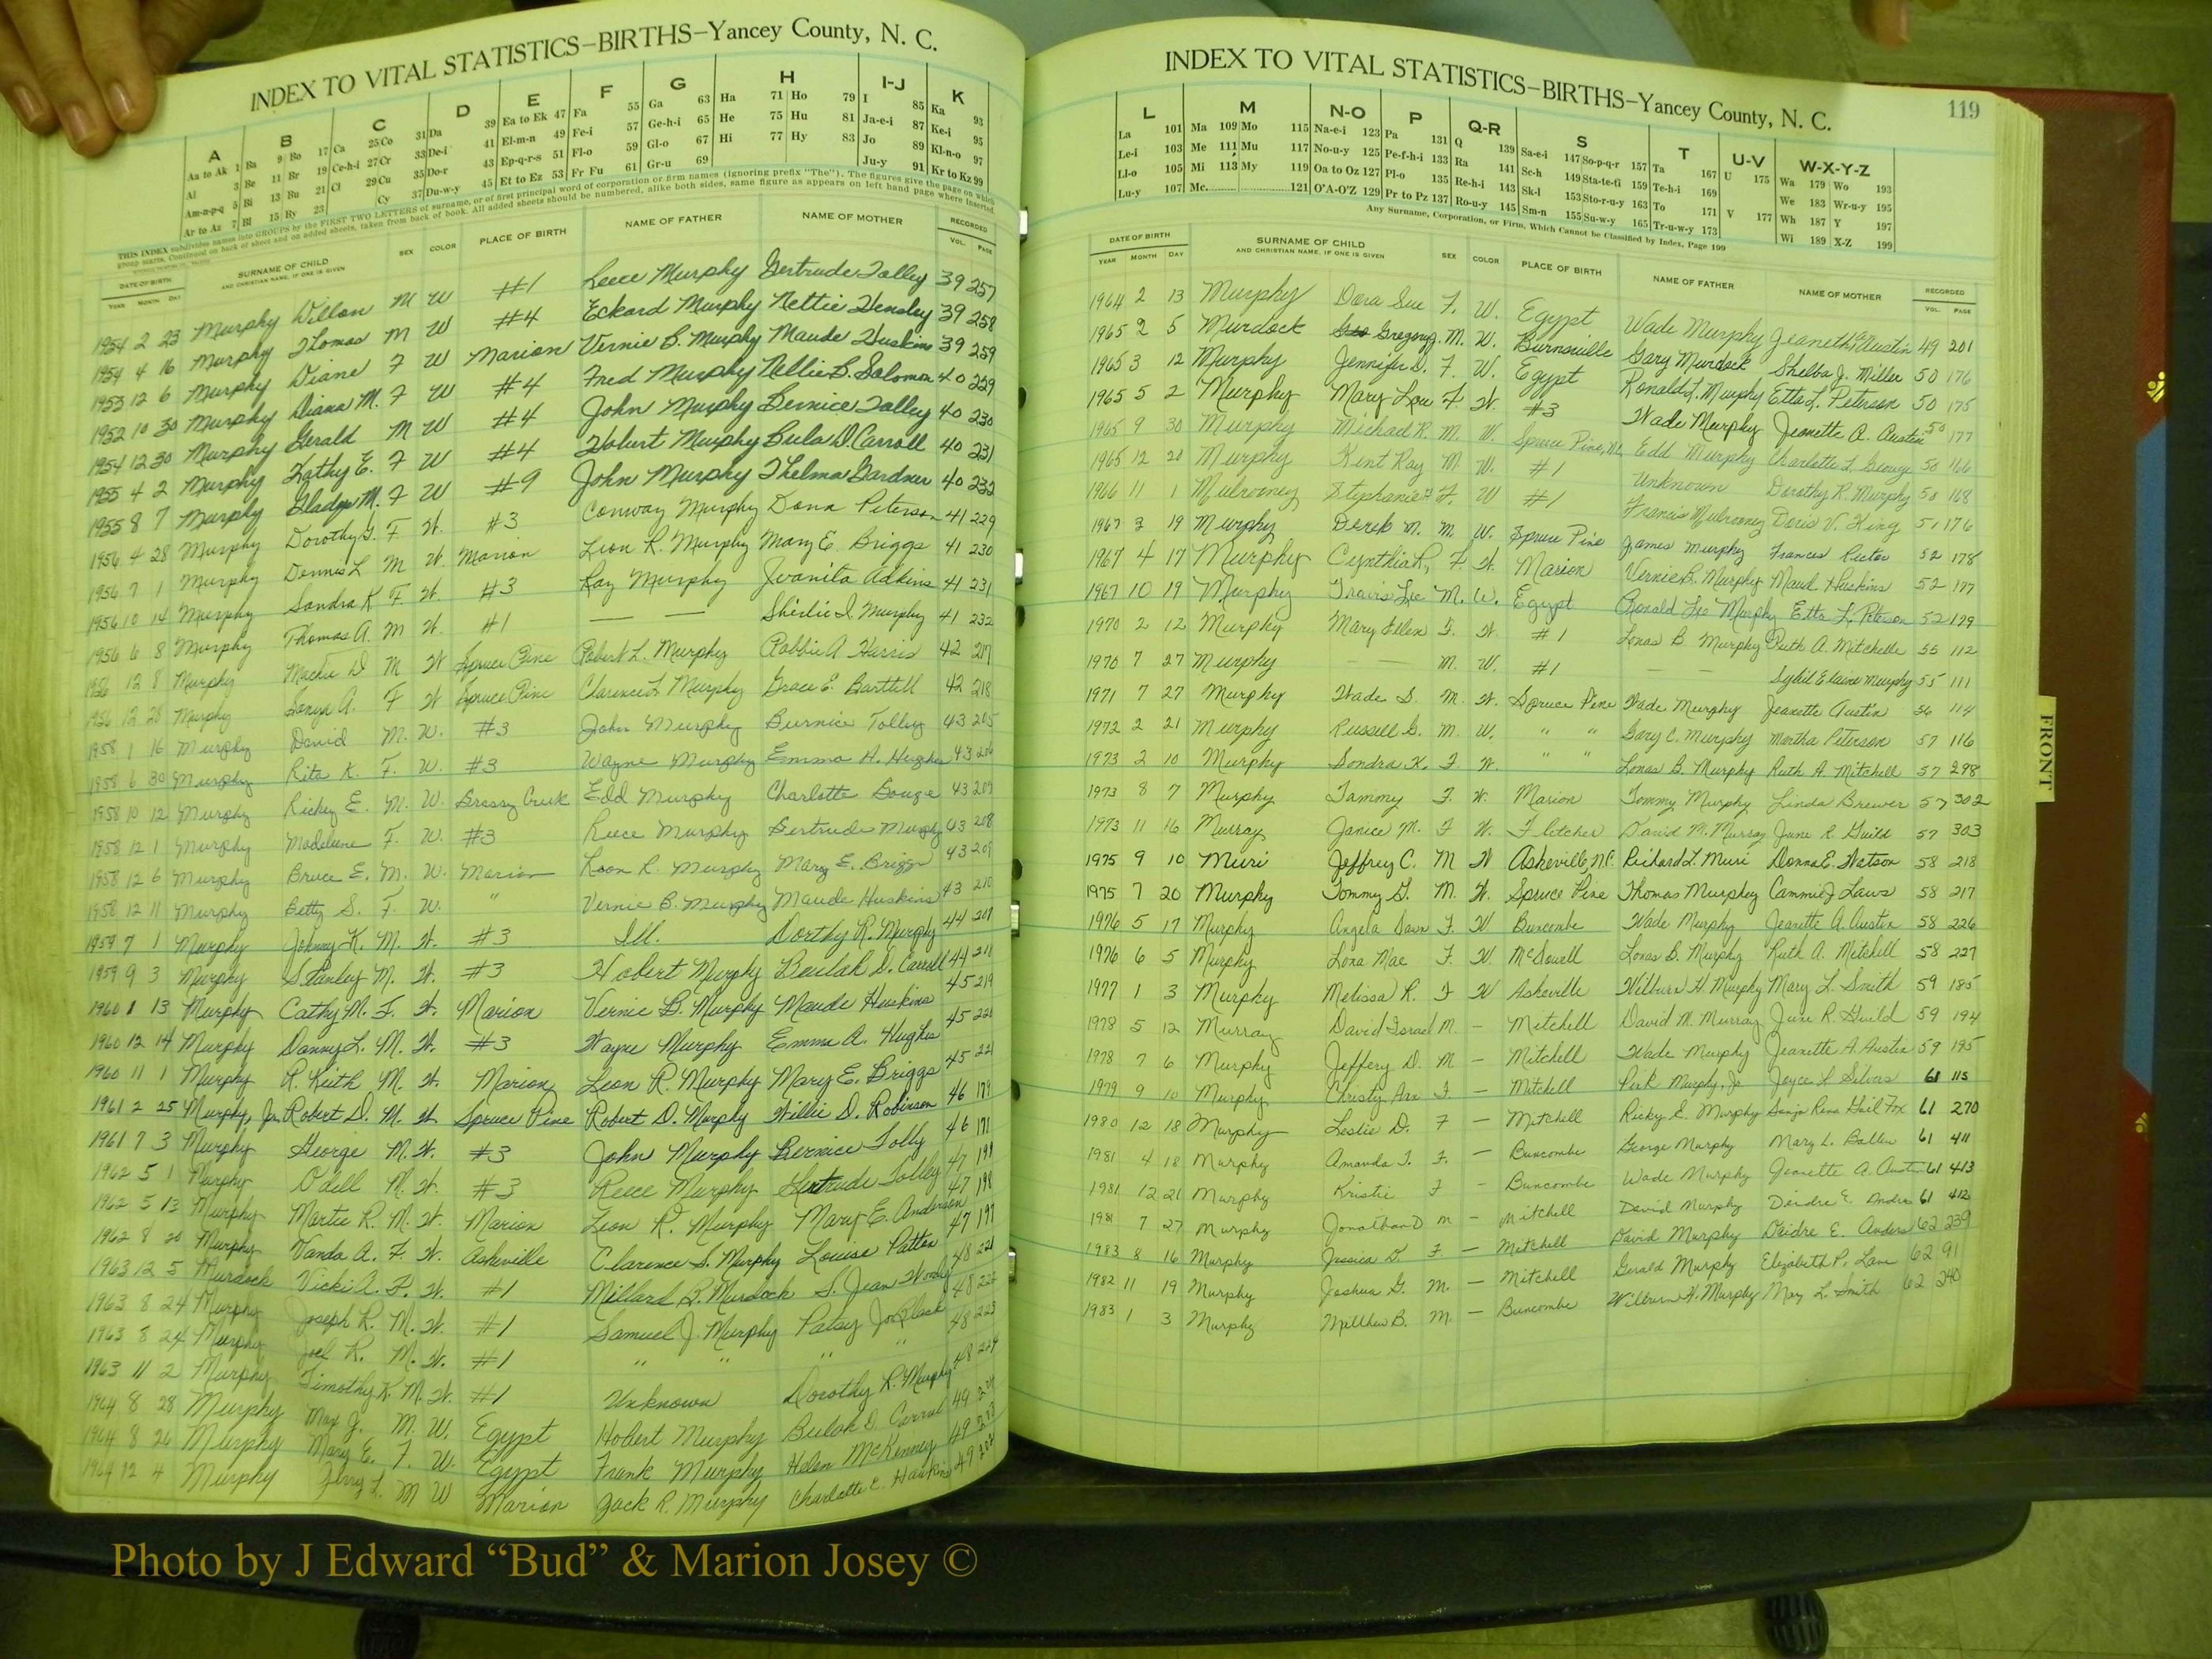 INDEX TO VITAL STATISTICS–BIRTHS–Yancey County, N. C.
A B C D E F G H I-J K
Aa to Ak 1 Ba 9 Bo 17 Ca 25 Co 31 Da 39 Ea to Ek 47 Fa 55 Ga 63 Ha 71 Ho 79 I 85 Ka 93
Al 3 Be 11 Br 19 Ce-h-i 27 Cr 33 De-i 41 El-m-n 49 Fe-i 57 Ge-h-i 65 He 75 Hu 81 Ja-e-i 87 Ke-i 95
Am-n-p-q 5 Bi 13 Bu 21 Cl 29 Cu 35 Do-r 43 Ep-q-r-s 51 Fl-o 59 Gl-o 67 Hi 77 Hy 83 Jo 89 Kl-n-o 97
Ar to Az 7 Bl 15 By 23 Cy 37 Du-w-y 45 Et to Ez 53 Fr Fu 61 Gr-u 69 Ju-y 91 Kr to Kz 99
THIS INDEX subdivides names into GROUPS by the FIRST TWO LETTERS of surname, or of first principal word of corporation or firm names (ignoring prefix "The"). The figures give the page on which
group starts. Continued on back of sheet and on added sheets, taken from back of book. All added sheets should be numbered, alike both sides, same figure as appears on left hand page where inserted.
DATE OF BIRTH SURNAME OF CHILD SEX COLOR PLACE OF BIRTH NAME OF FATHER NAME OF MOTHER RECORDED
YEAR MONTH DAY AND CHRISTIAN NAME, IF ONE IS GIVEN VOL. PAGE
1954 2 23 Murphy Dillon M W #1 Reece Murphy Gertrude Tolley 39 257
1954 4 16 Murphy Thomas M W #4 Eckard Murphy Nettie Hensley 39 258
1953 12 6 Murphy Diane F W Marion Vernie B. Murphy Maude Huskins 39 259
1952 10 30 Murphy Diana M. F W #4 Fred Murphy Nellie B. Solomon 40 229
1954 12 30 Murphy Gerald M W #4 John Murphy Bernice Tolley 40 230
1955 4 2 Murphy Kathy E. F W #4 Hobert Murphy Bula D. Carroll 40 231
1955 8 7 Murphy Gladys M. F W #9 John Murphy Thelma Gardner 40 232
1956 4 28 Murphy Dorothy F W. #3 Conway Murphy Dona Peterson 41 229
1956 7 1 Murphy Dennis L M W. Marion Leon R. Murphy Mary E. Briggs 41 230
1956 10 14 Murphy Sandra K F. W. #3 Ray Murphy Juanita Adkins 41 231
1956 6 8 Murphy Thomas A. M W. #1 — — Sherlie I. Murphy 41 232
1956 12 8 Murphy Mackie D M W Spruce Pine Robert L. Murphy Robbie A Harris 42 217
1956 12 28 Murphy Sonya A. F W Spruce Pine Clarence F. Murphy Grace E. Bartlett 42 218
1958 1 16 Murphy David M. W. #3 John Murphy Burnice Tolley 43 205
1958 6 30 Murphy Rita K. F. W. #3 Wayne Murphy Emma A. Hughes 43 206
1958 10 12 Murphy Rickey E. M. W. Brassy Creek Edd Murphy Charlotte Gouge 43 207
1958 12 1 Murphy Madeleine F. W. #3 Reece Murphy Gertrude Murphy 43 208
1958 12 6 Murphy Bruce E. M. W. Marion Leon R. Murphy Mary E. Briggs 43 209
1958 12 11 Murphy Betty S. F. W. " Vernie B. Murphy Maude Huskins 43 210
1959 7 1 Murphy Johnny K. M. W. #3 Ill. Dorthy R. Murphy 44 207
1959 9 3 Murphy Stanley M. W. #3 Hobert Murphy Beulah D. Carroll 44 211
1960 1 13 Murphy Cathy M. F. W. Marion Vernie B. Murphy Maude Huskins 45 219
1960 12 14 Murphy Danny L. M. W. #3 Wayne Murphy Emma A. Hughes 45 220
1960 11 1 Murphy R. Keith M. W. Marion Leon R. Murphy Mary E. Briggs 45 221
1961 2 25 Murphy, Jr. Robert D. M. W. Spruce Pine Robert D. Murphy Willie D. Robinson 46 179
1961 7 3 Murphy George M. W. #3 John Murphy Bernice Tolly 46 171
1962 5 1 Murphy Odell M. W. #3 Reece Murphy Gertrude Tolley 47 199
1962 5 13 Murphy Martie R. M. W. Marion Leon R. Murphy Mary E. Anderson 47 198
1962 8 20 Murphy Vanda A. F. W. Asheville Clarence S. Murphy Louise Patton 47 197
1963 12 5 Murdock Vicki A. F. W. #1 Millard R. Murdock S. Jean Woody 48 221
1963 8 24 Murphy Joseph R. M. W. #1 Samuel J. Murphy Patsy Jo Black 48 222
1963 8 24 Murphy Joel R. M. W. #1 " " " " 48 223
1963 11 2 Murphy Timothy K. M. W. #1 Unknown Dorothy R. Murphy 48 224
1964 8 28 Murphy Max J. M. W. Egypt Hobert Murphy Beulah D. Carrol 49
1964 8 26 Murphy Mary E. F. W. Egypt Frank Murphy Helen McKinney 49 203
1964 12 4 Murphy Jerry L. M W Marion Jack R. Murphy Charlotte E. Hawkins 49 202
INDEX TO VITAL STATISTICS–BIRTHS–Yancey County, N. C. 119
L M N-O P Q-R S T U-V W-X-Y-Z
La 101 Ma 109 Mo 115 Na-e-i 123 Pa 131 Q 139 Sa-e-i 147 So-p-q-r 157 Ta 167 U 175 Wa 179 Wo 193
Le-i 103 Me 111 Mu 117 No-u-y 125 Pe-f-h-i 133 Ra 141 Sc-h 149 Sta-te-ti 159 Te-h-i 169 We 183 Wr-u-y 195
Ll-o 105 Mi 113 My 119 Oa to Oz 127 Pl-o 135 Re-h-i 143 Sk-l 153 Sto-r-u-y 163 To 171 V 177 Wh 187 Y 197
Lu-y 107 Mc 121 O'A-O'Z 129 Pr to Pz 137 Ro-u-y 145 Sm-n 155 Su-w-y 165 Tr-u-w-y 173 Wi 189 X-Z 199
Any Surname, Corporation, or Firm, Which Cannot be Classified by Index, Page 199
DATE OF BIRTH SURNAME OF CHILD SEX COLOR PLACE OF BIRTH NAME OF FATHER NAME OF MOTHER RECORDED
YEAR MONTH DAY AND CHRISTIAN NAME, IF ONE IS GIVEN VOL. PAGE
1964 2 13 Murphy Dora Sue F. W. Egypt Wade Murphy Jeaneth E Austin 49 201
1965 2 5 Murdock Gregory M. W. Burnsville Gary Murdock Shelba J. Miller 50 176
1965 3 12 Murphy Jennifer D. F. W. Egypt Ronald L. Murphy Etta L. Peterson 50 175
1965 5 2 Murphy Mary Lou F. W. #3 Wade Murphy Jeanette A. Austin 50 177
1965 9 30 Murphy Michael R. M. W. Spruce Pine, N.C. Edd Murphy Charlotte F. Gouge 50 166
1965 12 20 Murphy Kent Ray M. W. #1 Unknown Dorothy R. Murphy 50 168
1966 11 1 Mulrooney Stephanie F. W #1 Francis Mulrooney Doris V. King 51 176
1967 3 19 Murphy Derek N. M. W. Spruce Pine James Murphy Frances Rector 52 178
1967 4 17 Murphy Cynthia R. F. W. Marion Vernie B. Murphy Maud Huskins 52 177
1967 10 19 Murphy Travis Lee M. W. Egypt Ronald Lee Murphy Etta L. Peterson 52 179
1970 2 12 Murphy Mary Ellen F. W. #1 Lonas B Murphy Ruth A. Mitchelle 55 112
1970 7 27 Murphy — — M. W. #1 — — Sybil Elaine Murphy 55 111
1971 7 27 Murphy Wade S. M. W. Spruce Pine Wade Murphy Jeanette Austin 56 114
1972 2 21 Murphy Russell G. M. W. " " Gary C. Murphy Martha Peterson 57 116
1973 2 10 Murphy Sondra K. F. W. " " Lonas B. Murphy Ruth A. Mitchell 57 298
1973 8 7 Murphy Tammy F. W. Marion Tommy Murphy Linda Brewer 57 302
1973 11 16 Murray Janice M. F W. Fletcher David M. Murray June R Guild 57 303
1975 9 10 Muri Jeffrey C. M W Asheville, N.C. Richard L. Muri Donna E. Watson 58 218
1975 7 20 Murphy Tommy G. M. W. Spruce Pine Thomas Murphey Cammie J Laws 58 217
1976 5 17 Murphy Angela Dawn F. W Buncombe Wade Murphy Jeanette A. Austin 58 226
1976 6 5 Murphy Lona Mae F. W. McDowell Lonas B. Murphy Ruth A. Mitchell 58 227
1977 1 3 Murphy Melissa R. F W Asheville Wilburn H. Murphy Mary L. Smith 59 185
1978 5 12 Murray David Israel M. – Mitchell David M. Murray June R. Guild 59 194
1978 7 6 Murphy Jeffery D. M – Mitchell Wade Murphy Jeanette A. Austin 59 195
1979 9 10 Murphy Christy Ann F – Mitchell Pink Murphy, Jr Joyce L Silvers 61 115
1980 12 18 Murphy Leslie D. F – Mitchell Ricky E. Murphy Sonja Rena Gail Fox 61 270
1981 4 18 Murphy Amanda J. F. – Buncombe George Murphy Mary L. Ballew 61 411
1981 12 21 Murphy Kristie F – Buncombe Wade Murphy Jeanette A. Austin 61 413
1981 7 27 Murphy Jonathan D M – Mitchell David Murphy Deirdre E. Anders 61 412
1983 8 16 Murphy Jessica D. F – Mitchell David Murphy Deidre E. Anders 62 239
1982 11 19 Murphy Joshua G. M. – Mitchell Gerald Murphy Elizabeth P. Lane 62 91
1983 1 3 Murphy Matthew B. M. – Buncombe Wilburn H. Murphy Mary L. Smith 62 240
FRONT
Photo by J Edward “Bud” & Marion Josey ©